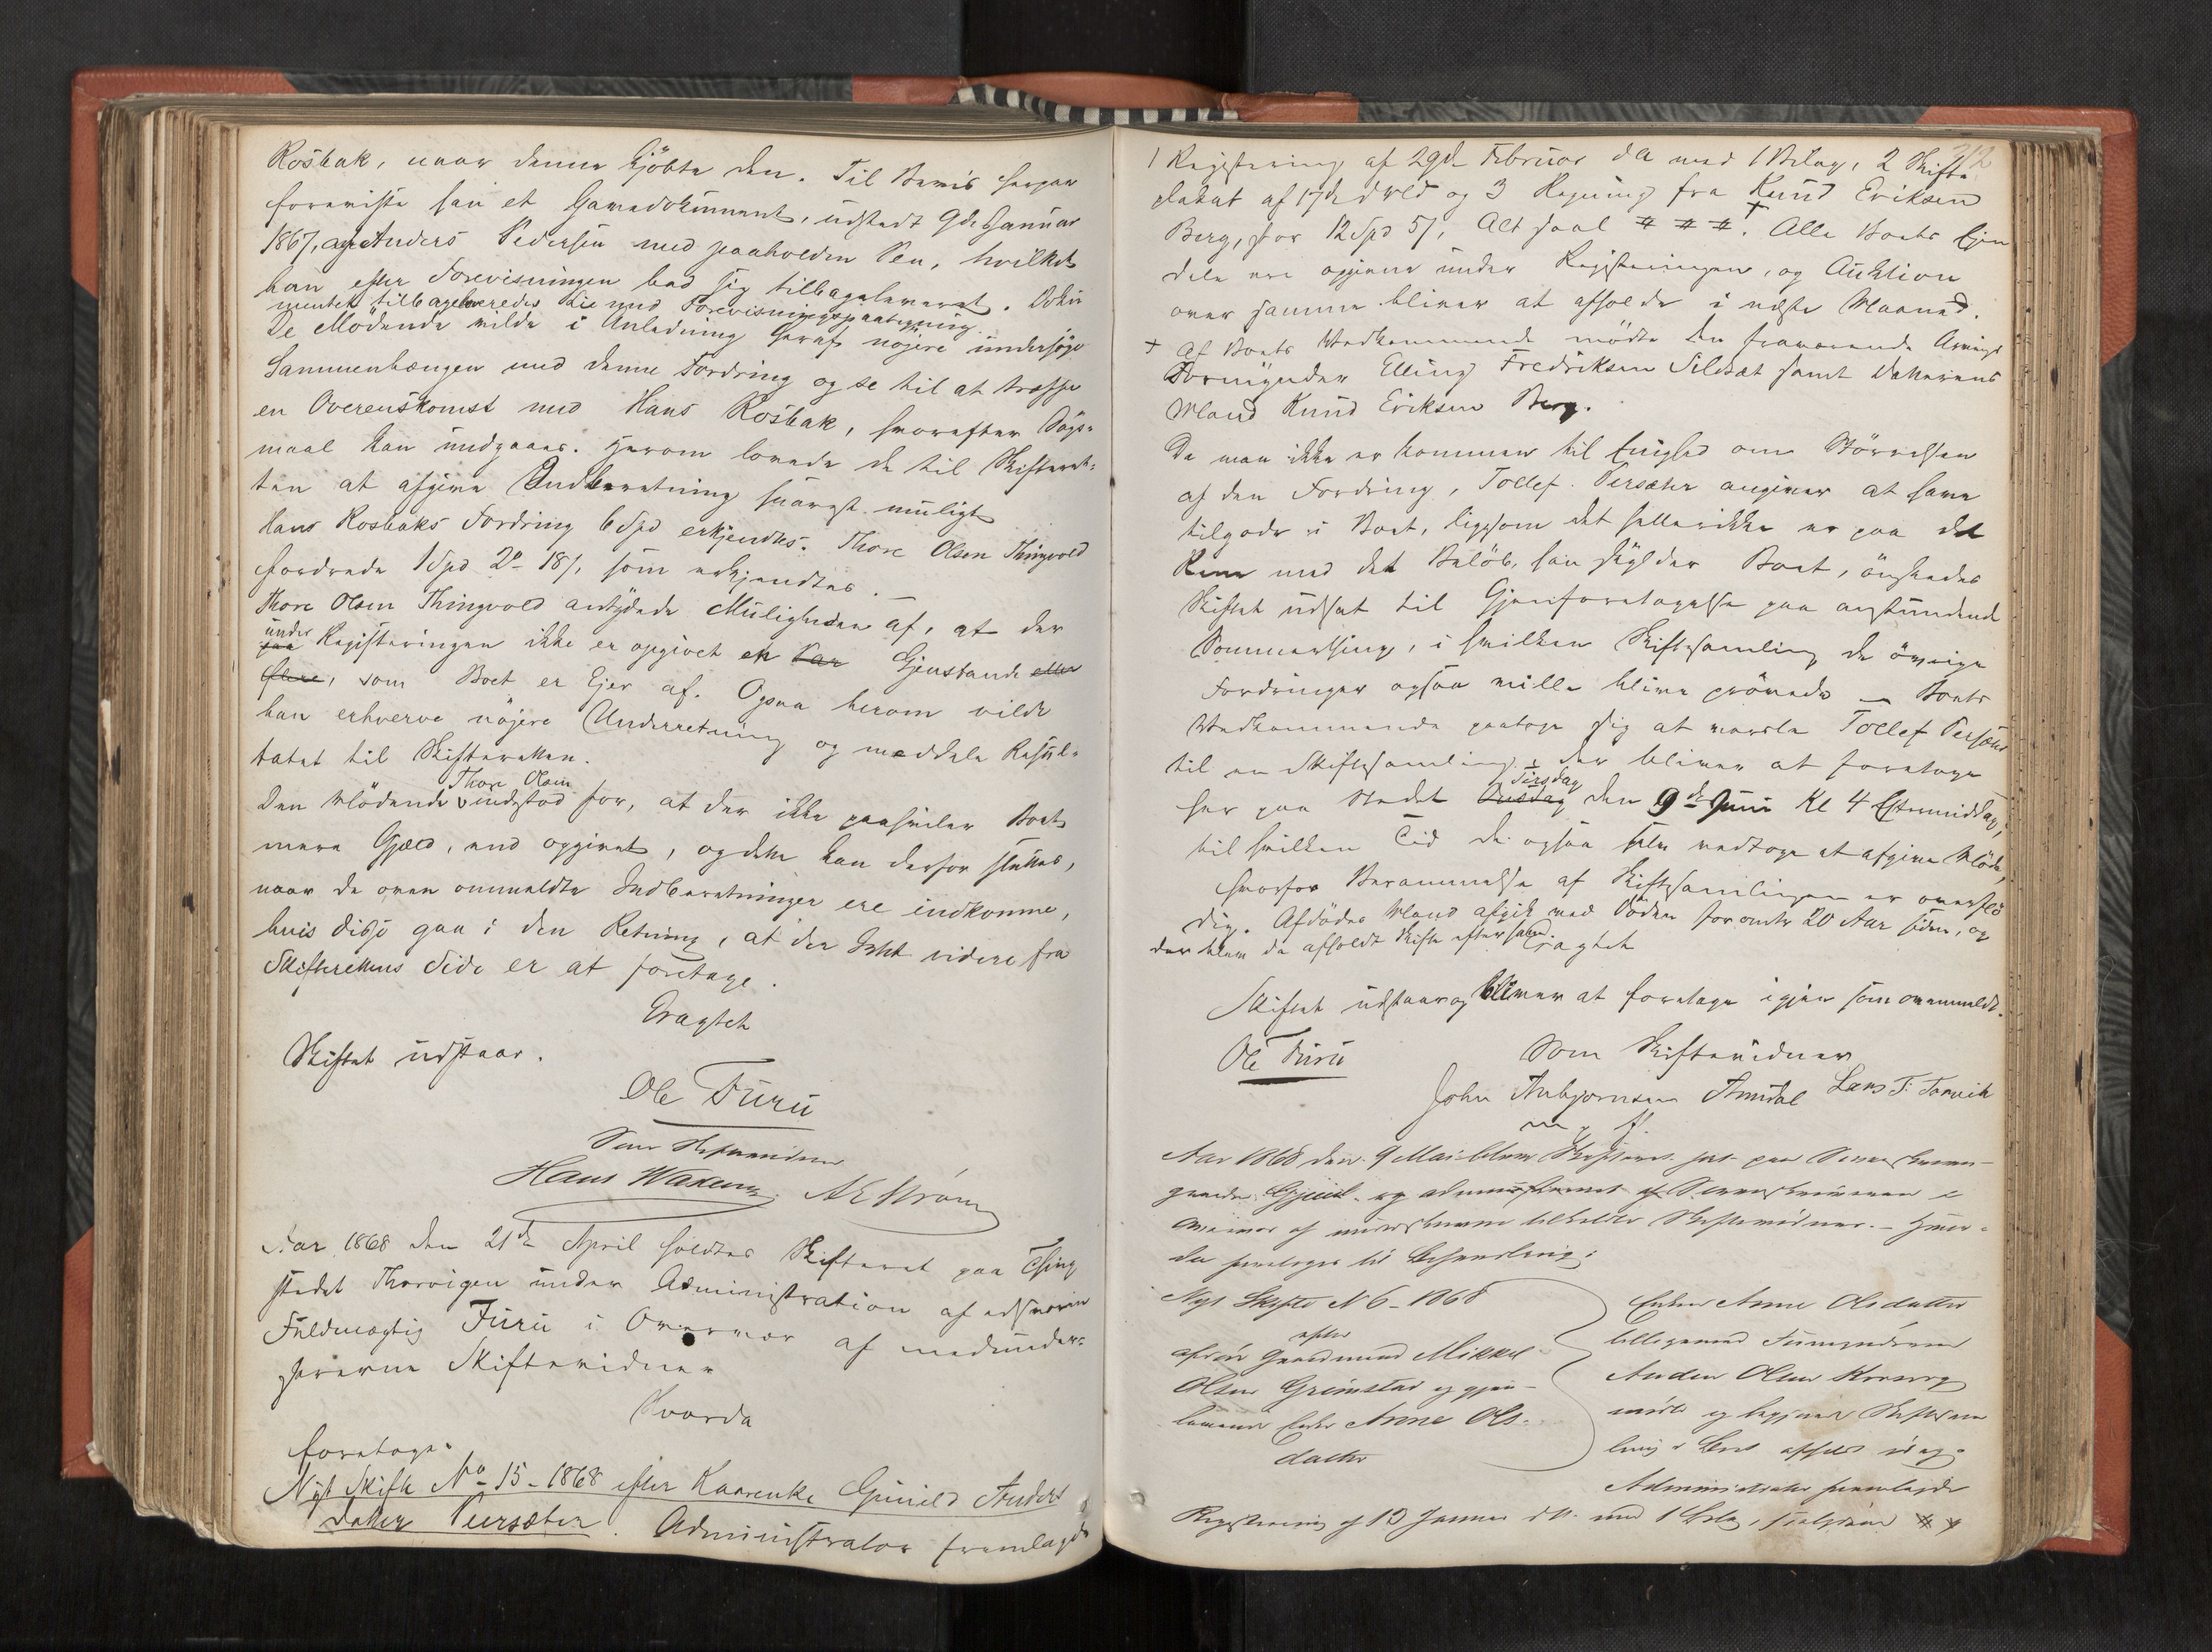 Rosbak, naar denne kjöbte den. Til Beviis herpaa
foreviste han et Gavedokument, udstedt 9de Januar
1867, af Anders Pedersen med paaholden Pen, hvilket
han efter Forevisningen bad sig tilbageleveret. Doku-
mentet tilbageleveredes die med Forevisningspaategning.
De Mödende vilde i Anledning heraf nöjere undersöge
Sammenhængen med denne Fordring og se til at træffe
en Overenskomst med Hans Rosbak, hvorefter Sögs-
maal kan undgaaes. Herom lovede de til Skifteret-
ten at afgive Indberetning snarest muligt
Hans Rosbaks Fordring 6 Spd erkjendtes. Thore Olsen Thingvold
fordrede 1 Spd 2 18/, som erkjendtes. —
Thore Olsen Thingvold antydede Muligheden af, at der
under
paa Registeringen ikke er opgivet en Par Gjenstande eller
flere, som Boet er Ejer af. Ogsaa herom vilde
han erhverve nöjere Underretning og meddele Resul-
tatet til Skifteretten.
Thore Olsen
Den Mödende indestod for, at der ikke paahviler Boet
mere Gjæld, end opgivet, og dette kan derfor sluttes,
naar de oven ommeldte Indberetninger ere indkomne,
hvis disse gaa i den Retning, at der Intet videre fra
Skifterettens Side er at foretage.
Eragtet
Skiftet udstaar.
Ole Furu
Som Skiftevidner
Hans Waxeng A E Strøm
Aar 1868 den 21de April holdtes Skifteret paa Thing-
stedet Thorvigen under Administration af edsvoren
Fuldmægtig Furu i Overvær af medunder-
skrevne Skiftevidner
Hvorda
foretoges
Nyt Skifte No 15 - 1868 efter Kaarenke Gunild Anders
datter Persæter. Administrator fremlagde
312
1 Registering af 29de Februar d A med 1 Bilag, 2 Skifte-
datat af 17de d og 3 Regning fra Knud Eriksen
Berg, for 12 Spd 5/, Alt saal # # #. † Alle Boets Ejen
dele ere opgivne under Registeringen, og Auktion
over samme bliver at afholde i næste Maaned.
† Af Boets Vedkommende mödte den fraværende Arvings
Formynder Elling Fredriksen Sildset samt Datterens
Mand Knud Eriksen Berg.
Da man ikke er kommen til Enighed om Störrelsen
af den Fordring, Tollef Persæter angiver at have
tilgode i Boet, ligesom det heller ikke er paa det
Rene med det Belöb, han skylder Boet, önskedes
Skiftet udsat til Gjenforetagelse paa anstundende
Sommerthing, i hvilken Skiftesamling de övrige
Fordringer ogsaa ville blive prövede — Boets
Vedkommende paatog sig at varsle Tollef Persæter
til en Skiftesamling, der bliver at foretage
Tirsdag
her paa Stedet Onsdag den 9de Juni Kl 4 Eftermiddag,
til hvilken Tid de ogsaa selv vedtoge at afgive Möde,
hvorfor Berammelse af Skiftesamlingen er överflö
dig. Afdödes Mand afgik ved Döden for omtr 20 Aar siden, og
der blev da afholdt Skifte efter ham.
Eragtet
Skiftet udstaar og bliver at foretage igjen som ovenmeldt.
Ole Furu
Som Skiftevidner
John Anbjornsen Amdal Lars T. Torvik
m. p. P.
Aar 1868 den 9 Mai blev Skifteret sat paa Sorenskriver-
gaarden Gjuul og administreret af Sorenskriveren i
Overvær af underskrevne tilkaldte Skiftevidner. - Hvor-
da foretoges til Behandling:
Nyt Skifte N 6 - 1868
efter
afdöde Gaardmand Mikkel
Olsen Grimstad og gjen-
levende Enke Anne Ols-
datter
Enken Anne Olsdatter
tilligemed Formynderen
Anders Olsen
mödte og begjærede Skiftesam
ling i Boet afholdt idag.
Administrator fremlagde
Registrering af 13 Januar d A. med 1 Bilag, # #